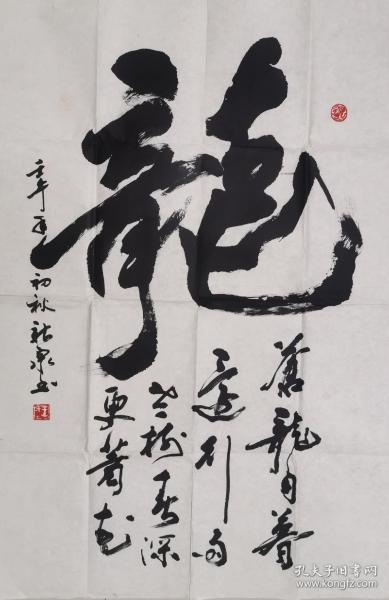 龍
蒼龍日暮
還行雨
老樹春深
更著花
初秋
孔夫子旧书网
www.kongfz.com